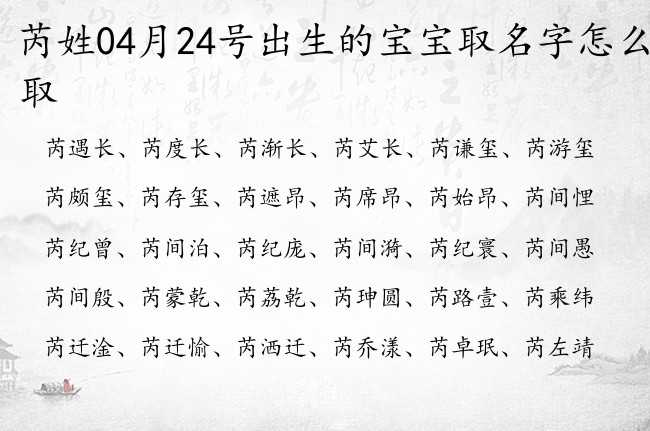 芮姓04月24号出生的宝宝取名字怎么
取
芮遇长、芮度长、芮渐长、芮艾长、芮谦玺、芮游玺
芮颇玺、芮存玺、芮遮昂、芮席昂、芮始昂、芮间悝
芮纪曾、芮间泊、芮纪庞、芮间漪、芮纪寰、芮间愚
芮间殷、芮蒙乾、芮荔乾、芮珅圆、芮路壹、芮乘纬
芮迁淦、芮迁愉、芮洒迁、芮乔漾、芮卓珉、芮左靖